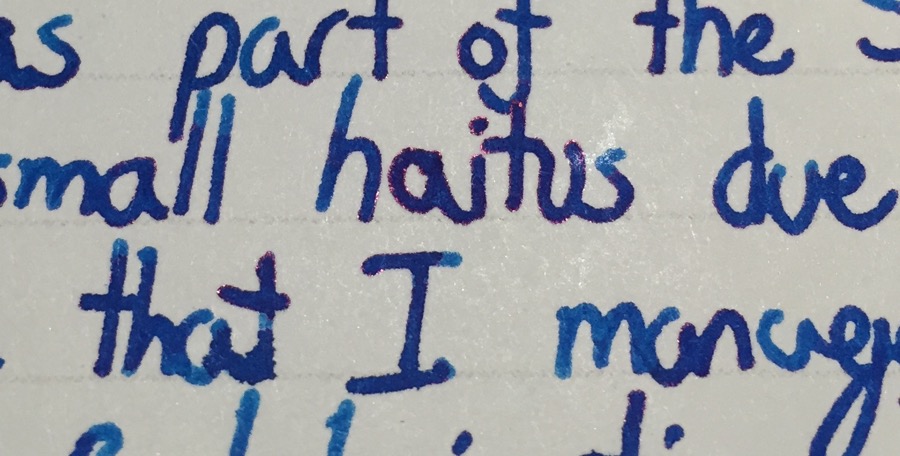 as part of the
small haitus due
that I manag